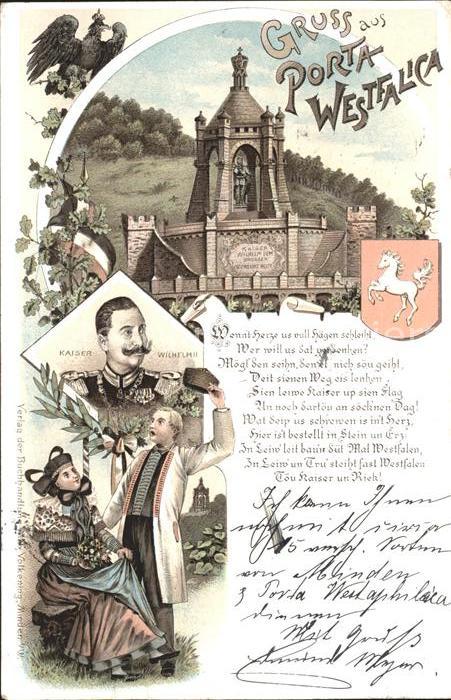 Gruss aus
Porta
Westfalica
KAISER
WILHELM DEM
GROSSEN
KAISER WILHELM II
Wenn't Herze us vull Hägen schleiht,
Wer will us dat verdenken?
Mögt den seihn, den et nich söu geiht,
Deit sienen Weg eis lenken.
Sien leiwe Kaiser up sien Flag
Un noch dartöu an söcknen Dag!
Wat deip us schrewen is in't Herz,
Hier ist bestellt in Stein un Erz:
In Leiw' leit baun düt Mal Westfalen,
In Leiw' un Tru' steiht fast Westfalen
Töu Kaiser un Riek!
Verlag der Buchhandlung
Ich kann Ihnen
mit
15 versch. Karten
von Minden
& Porta Westphalica
dienen
Mit Gruß
Meyer